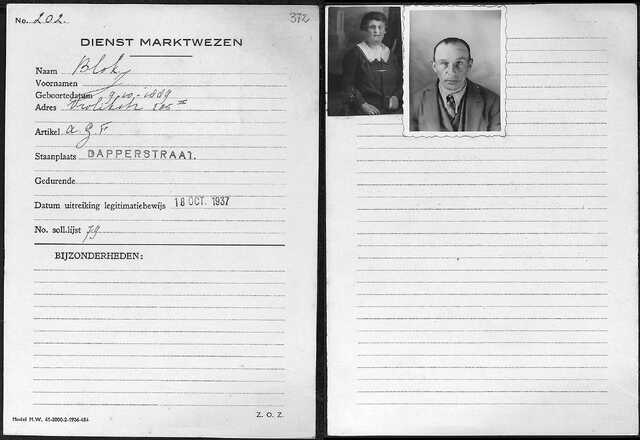 No. 202. 372
DIENST MARKTWEZEN
Naam Blok
Voornamen
Geboortedatum 9-10-1889
Adres
Artikel a g F
Staanplaats DAPPERSTRAAT.
Gedurende
Datum uitreiking legitimatiebewijs 18 OCT. 1937
No. soll.lijst 79
BIJZONDERHEDEN:
Model M.W. 41-2000-2-1936-484 Z. O. Z.